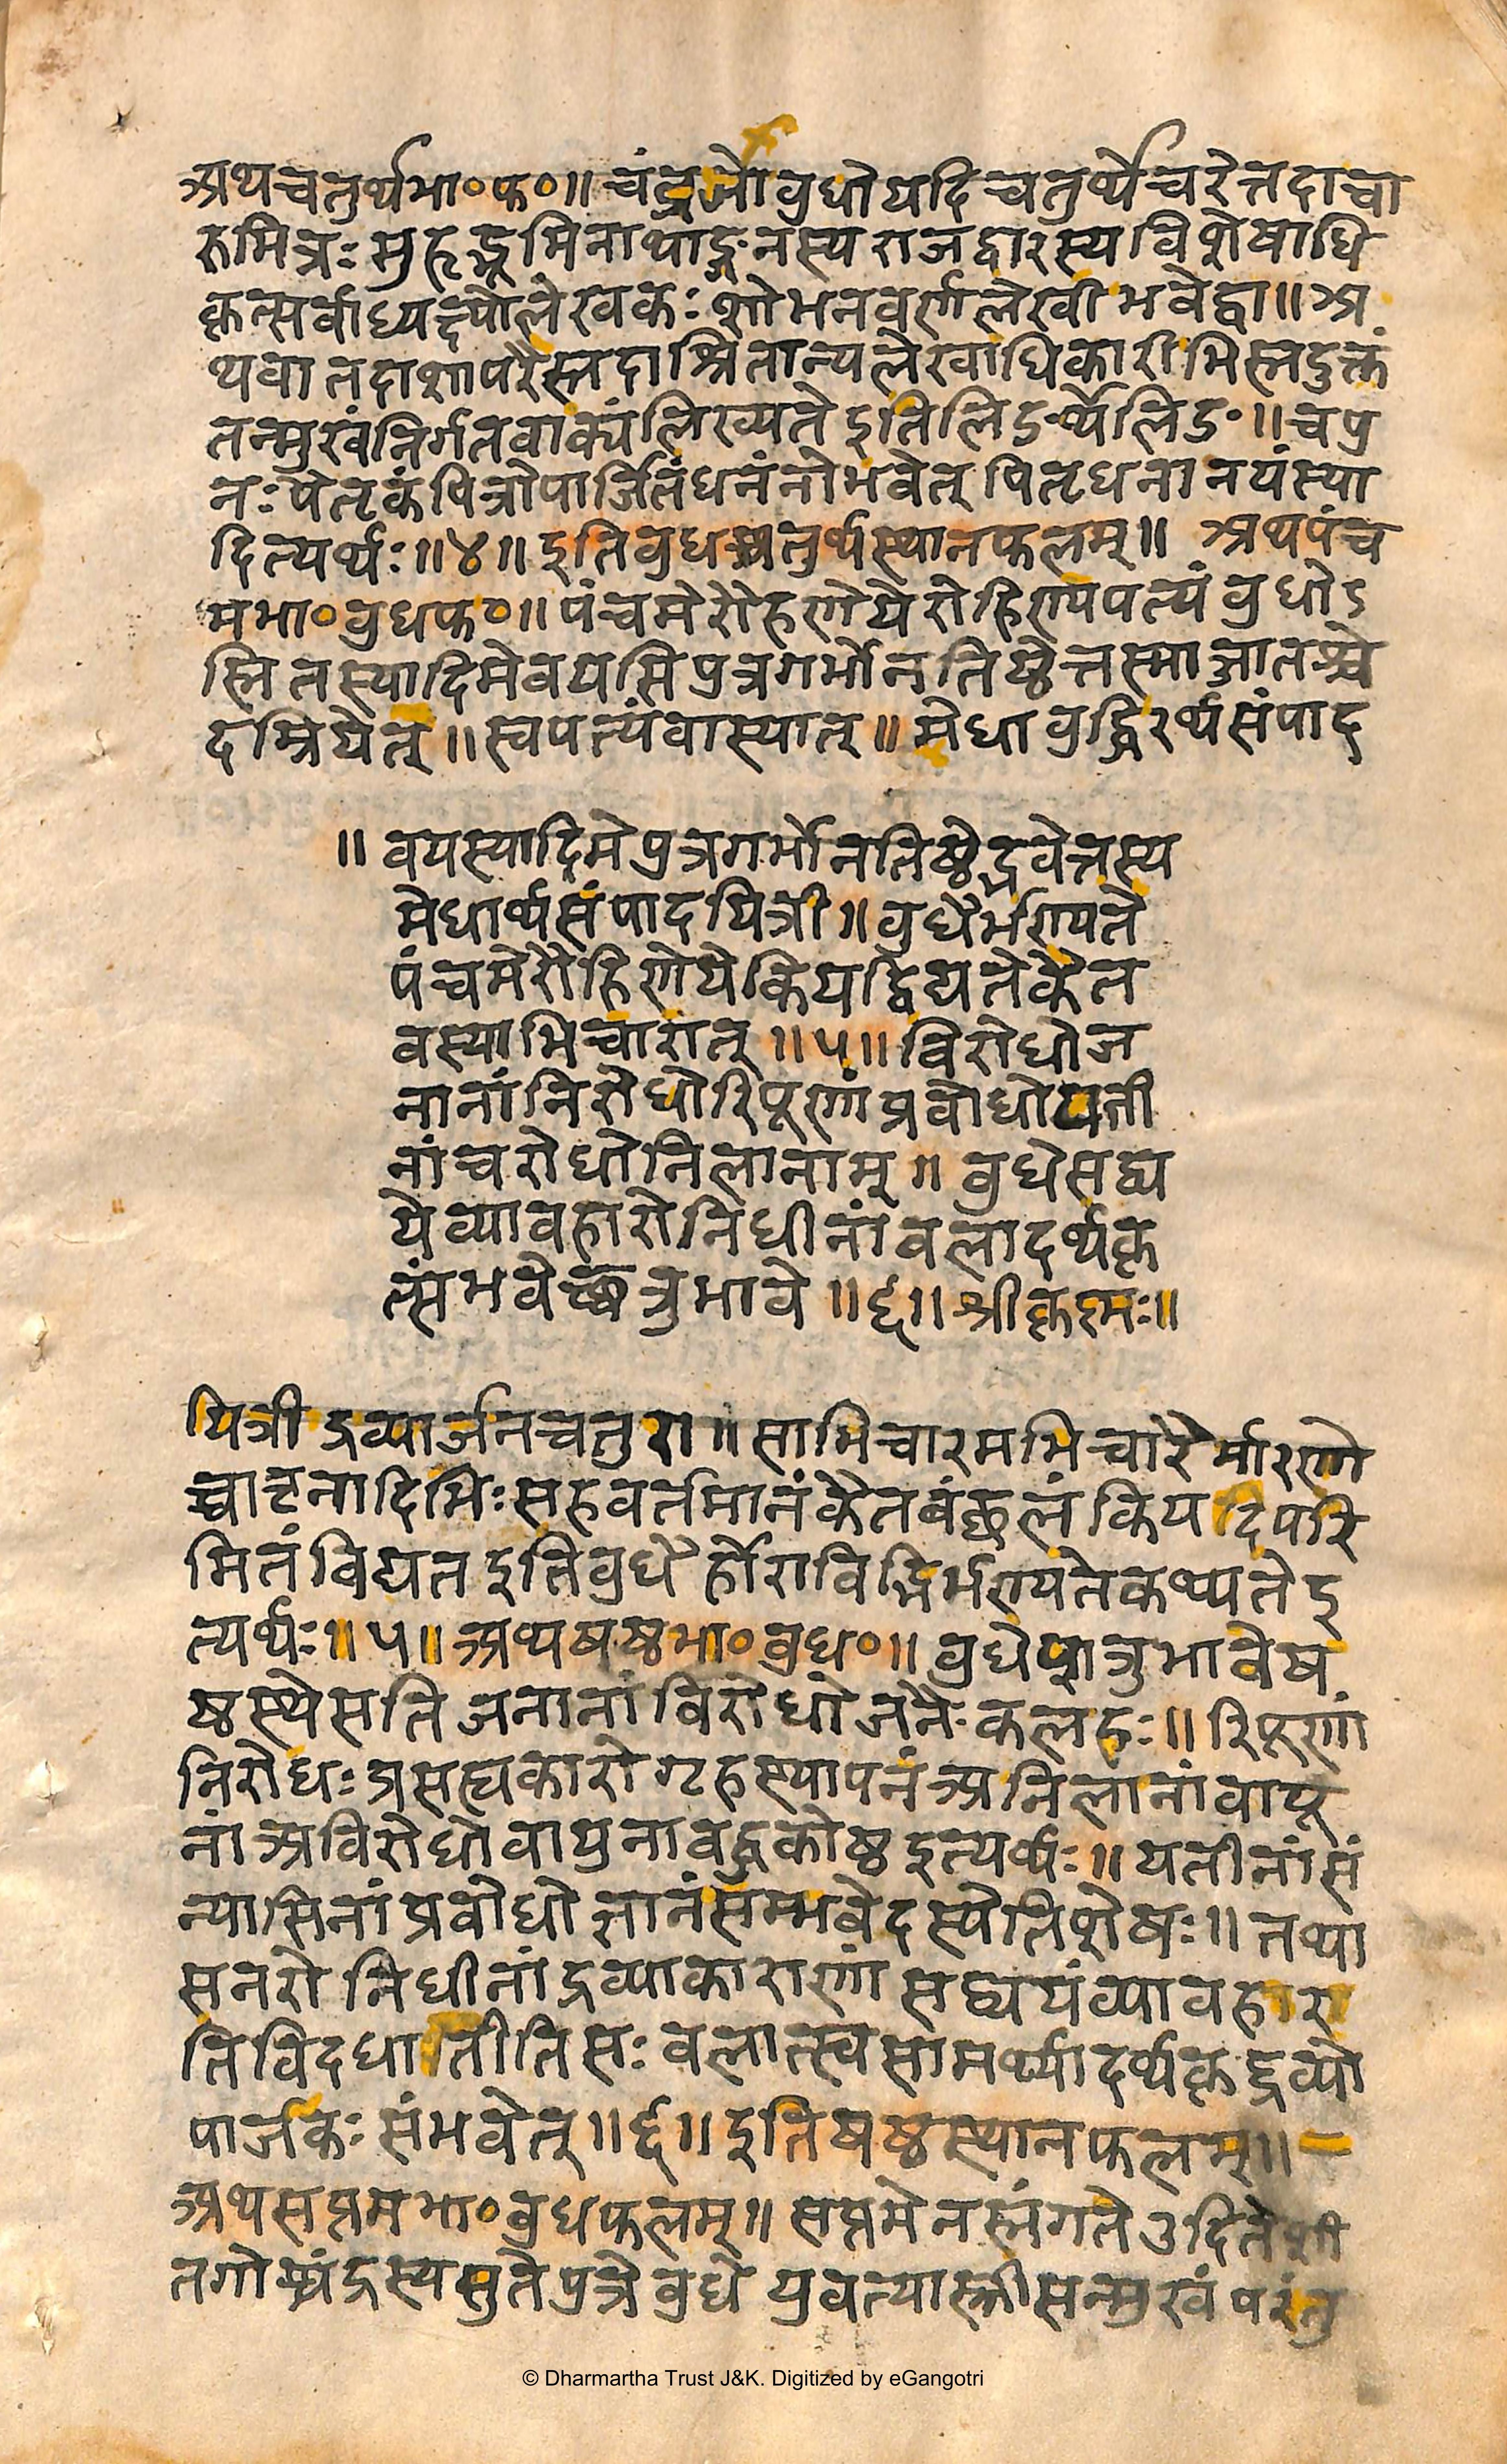 अथचतुर्थभा०फ०॥ चंद्रजो वुधो यदि चतुर्थे चरेत्तदा चा
रुमित्रः सुहृद्भूमिनाथाङ्गनस्य राजद्वारस्य विशेषाधि
कृत्सर्वाध्यक्ष्यो लेखकः शोभनवर्णलेखी भवेद्वा॥ अ
थवा तदाशापरैस्तदाश्रितान्यलेखाधिकारीभिस्तदुक्तं
तन्मुखंनिर्गतवाक्यं लिख्यते इति लिङर्थे लिङ॰॥ च पु
नः पैतृकं पित्रोपार्जितं धनं नो भवेत् पितृधनानयं स्या
दित्यर्थः॥४॥ इति वुधश्चतुर्थस्थानफलम्॥ अथ पंच
मभा०वुधफ०॥ पंचमे रौहणेये रोहिण्यपत्यं वुधोऽ
स्ति तस्यादिमे वयसि पुत्रगर्भो न तिष्ठेत्तस्माज्जातश्चे
दम्रियेत्॥ स्वपत्यं वा स्यात्॥ मेधा वुद्धिरर्थसंपाद
॥ वयस्यादिमे पुत्रगर्भो न तिष्ठेद्भवेत्तस्य
मेधार्थसंपादयित्री॥ वुधैर्भण्यते
पंचमे रौहिणेये कियद्विद्यते कैत
वस्याभिचारात्॥५॥ विरोधो ज
नानां निरोधो रिपूणां प्रवोधो यती
नां च रोधो निलानाम्॥ वुधे सद्व्य
ये व्यावहारो निधीनां वलादर्थकृ
त्संभवेच्छत्रुभावे॥६॥ श्रीकृष्णः॥
यित्री द्रव्यार्जनचतुरा॥ साभिचारमभिचारैर्मारणो
च्चाटनादिभिः सहवर्तमानं कैतवं छलं कियदिपरि
मितं विद्यत इति वुधैर्होराविद्भिर्भण्यते कथ्यते इ
त्यर्थः॥५॥ अथ षष्ठभा०वुध०॥ वुधे शत्रुभावे ष
ष्ठस्थे सति जनानां विरोधो जनैः कलहः॥ रिपूणां
निरोधः प्रसह्यकारो गृहस्थापनं अनिलानां वायू
नां अविरोधो वायुनावद्धकोष्ठ इत्यर्थः॥ यतीनां सं
न्यासिनां प्रवोधो ज्ञानं सम्भवेदस्येति शेषः॥ तथा
स नरो निधीनां द्रव्याकाराणां सद्व्ययं व्यावहार
ति विदधातीति सः वलात्स्वसामर्थ्यादर्थकृद्द्रव्यो
पार्जकः संभवेत्॥६॥ इति षष्ठस्थानफलम्॥ —
अथ सप्तमभा०वुधफलम्॥ सप्तमे नस्तंगते उदिते शी
तगोश्चंद्रस्य सुते पुत्रे वुधे युवत्यास्त्रीसन्मुखं परंतु
© Dharmartha Trust J&K. Digitized by eGangotri